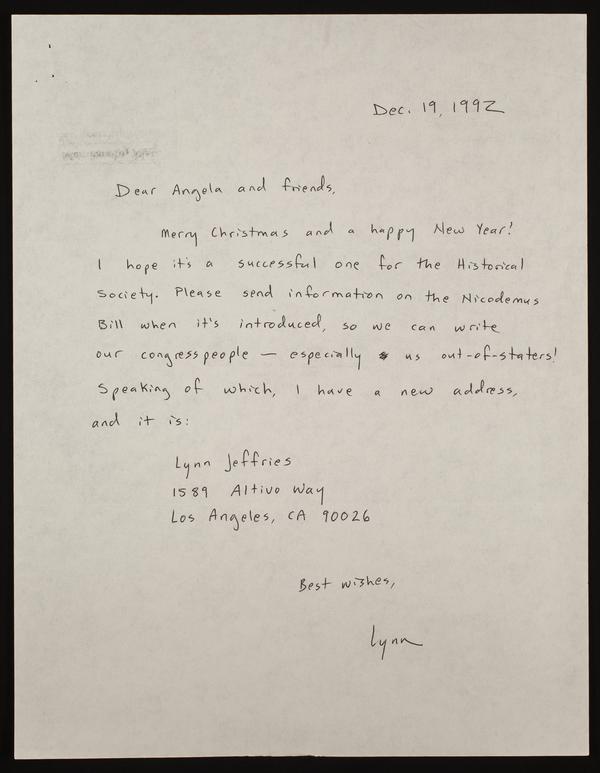 Dec. 19, 1992
Dear Angela and friends,
Merry Christmas and a happy New Year!
I hope it's a successful one for the Historical
Society. Please send information on the Nicodemus
Bill when it's introduced, so we can write
our congresspeople — especially us out-of-staters!
Speaking of which, I have a new address,
and it is:
Lynn Jeffries
1589 Altivo Way
Los Angeles, CA 90026
Best wishes,
Lynn